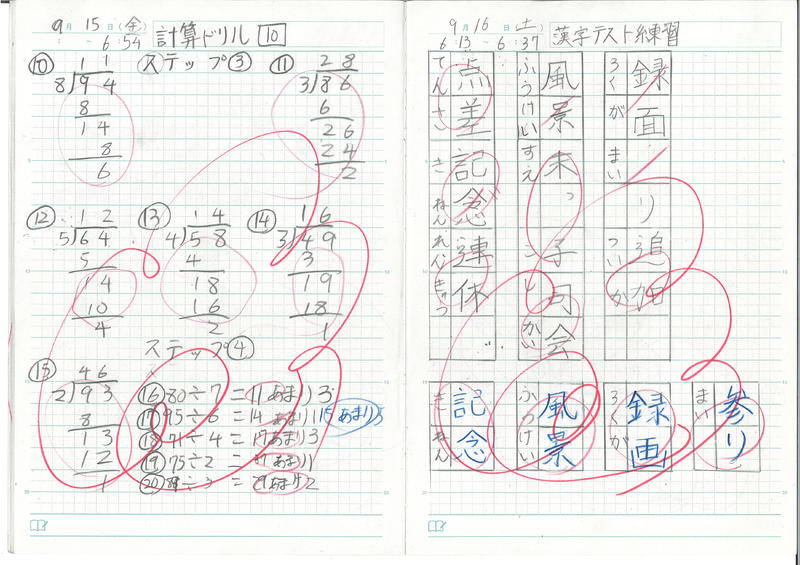 9月15日(金)
~6:54 計算ドリル 10
ステップ③
⑩ 11
8)94
8
14
8
6
⑪ 28
3)86
6
26
24
2
⑫ 12
5)64
5
14
10
4
⑬ 14
4)58
4
18
16
2
⑭ 16
3)49
3
19
18
1
ステップ④
⑮ 46
2)93
8
13
12
1
⑯ 80÷7=11あまり3
⑰ 95÷6=14あまり1 15あまり5
⑱ 71÷4=17あまり3
⑲ 75÷2=37あまり1
⑳ ÷3=29あまり2
9月16日(土)
6:13~6:37 漢字テスト練習
録面
ろくが
まいり
追加
ついか
風景
ふうけい
末っ子
すえ こ
司会
しかい
点差
てんさ
記念
きねん
連休
れんきゅう
参り
まい
録画
ろくが
風景
ふうけい
記念
きねん